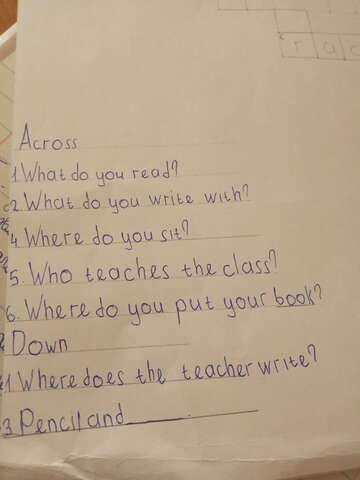 r a c
Across
1 What do you read?
2. What do you write with?
4. Where do you sit?
5. Who teaches the class?
6. Where do you put your book?
Down
1 Where does the teacher write?
3 Pencil and